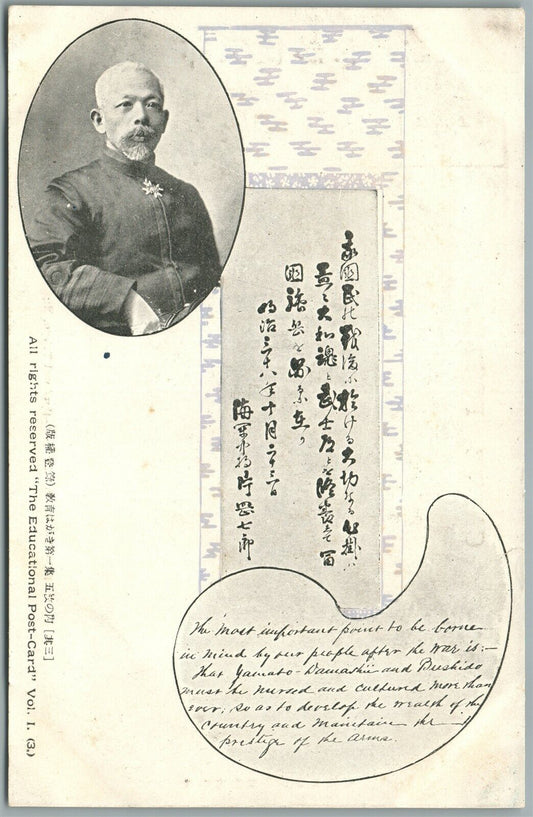 我國民の戰後に於ける大切なる心掛は
益々大和魂と武士道とを隆盛にし富
國強兵を圖るに在り
明治三十八年十月二十三日
海軍中将片岡七郎
The most important point to be borne
in mind by our people after the war is:—
that Yamato-Damashii and Bushido
must be nursed and cultured more than
ever, so as to develop the wealth of the
country and maintain the
prestige of the arms.
教育はがき第一集 五發の内 [其三]
All rights reserved "The Educational Post-Card" Vol. I. (3.)